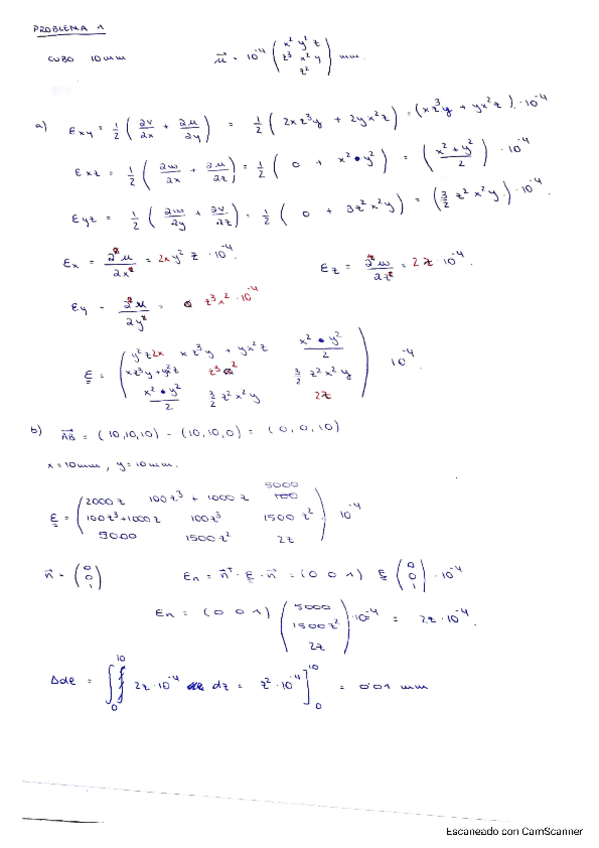 PROBLEMA 1
CUBO 10mm
u⃗ = 10⁻⁴ (x² y² z ; z³ x² y ; z²) mm.
a) Exy = 1/2 (∂v/∂x + ∂u/∂y) = 1/2 (2xz³y + 2yx²z) = (xz³y + yx²z)·10⁻⁴
Exz = 1/2 (∂w/∂x + ∂u/∂z) = 1/2 (0 + x²·y²) = (x² + y² / 2)·10⁻⁴
Eyz = 1/2 (∂w/∂y + ∂v/∂z) = 1/2 (0 + 3z²x²y) = (3/2 z²x²y)·10⁻⁴.
Ex = ∂u/∂x = 2xy² z·10⁻⁴
Ez = ∂w/∂z = 2z·10⁻⁴.
Ey = ∂u/∂y = z³x²·10⁻⁴
E = (y²z2x  xz³y + yx²z  x²·y²/2 ; xz³y+yx²z  z³x²  3/2 z²x²y ; x²·y²/2  3/2 z²x²y  2z) 10⁻⁴.
b) AB⃗ = (10,10,10) - (10,10,0) = (0,0,10)
x=10mm, y=10mm.
E = (2000z  100z³ + 1000z  5000 ; 100z³+1000z  100z³  1500z² ; 5000  1500z²  2z) 10⁻⁴
n⃗ = (0 ; 0 ; 1)
En = n⃗ᵀ·E·n⃗ = (0 0 1) E (0 ; 0 ; 1)·10⁻⁴
En = (0 0 1) (5000 ; 1500z² ; 2z)·10⁻⁴ = 2z·10⁻⁴.
Δde = ∫₀¹⁰ 2z·10⁻⁴ dz = z²·10⁻⁴]₀¹⁰ = 0'01 mm
Escaneado con CamScanner